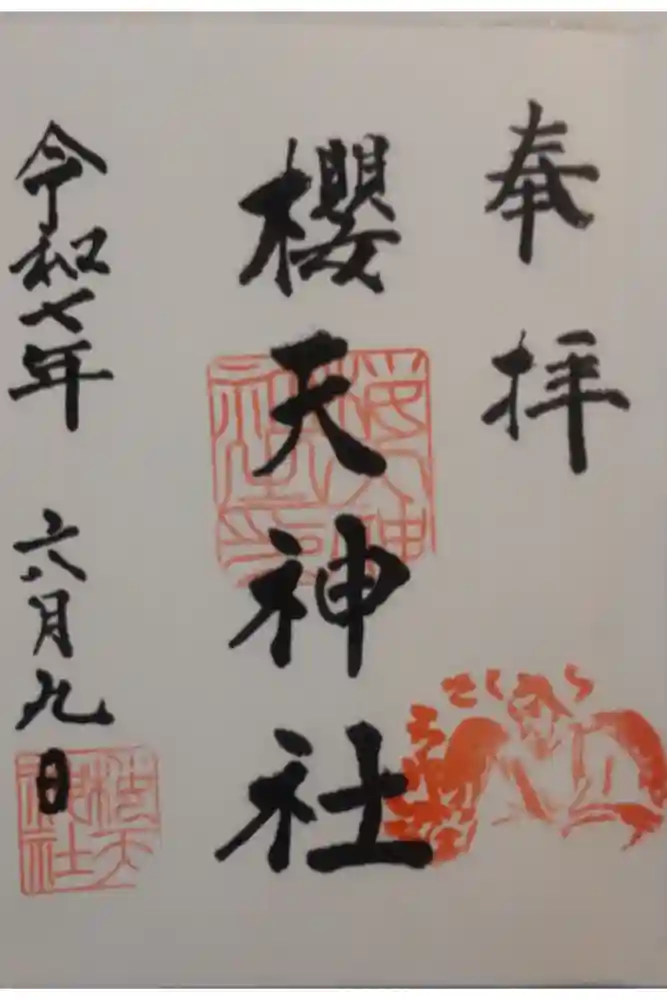 奉拝
櫻天神社
令和七年 六月九日
櫻天神社印
さくら